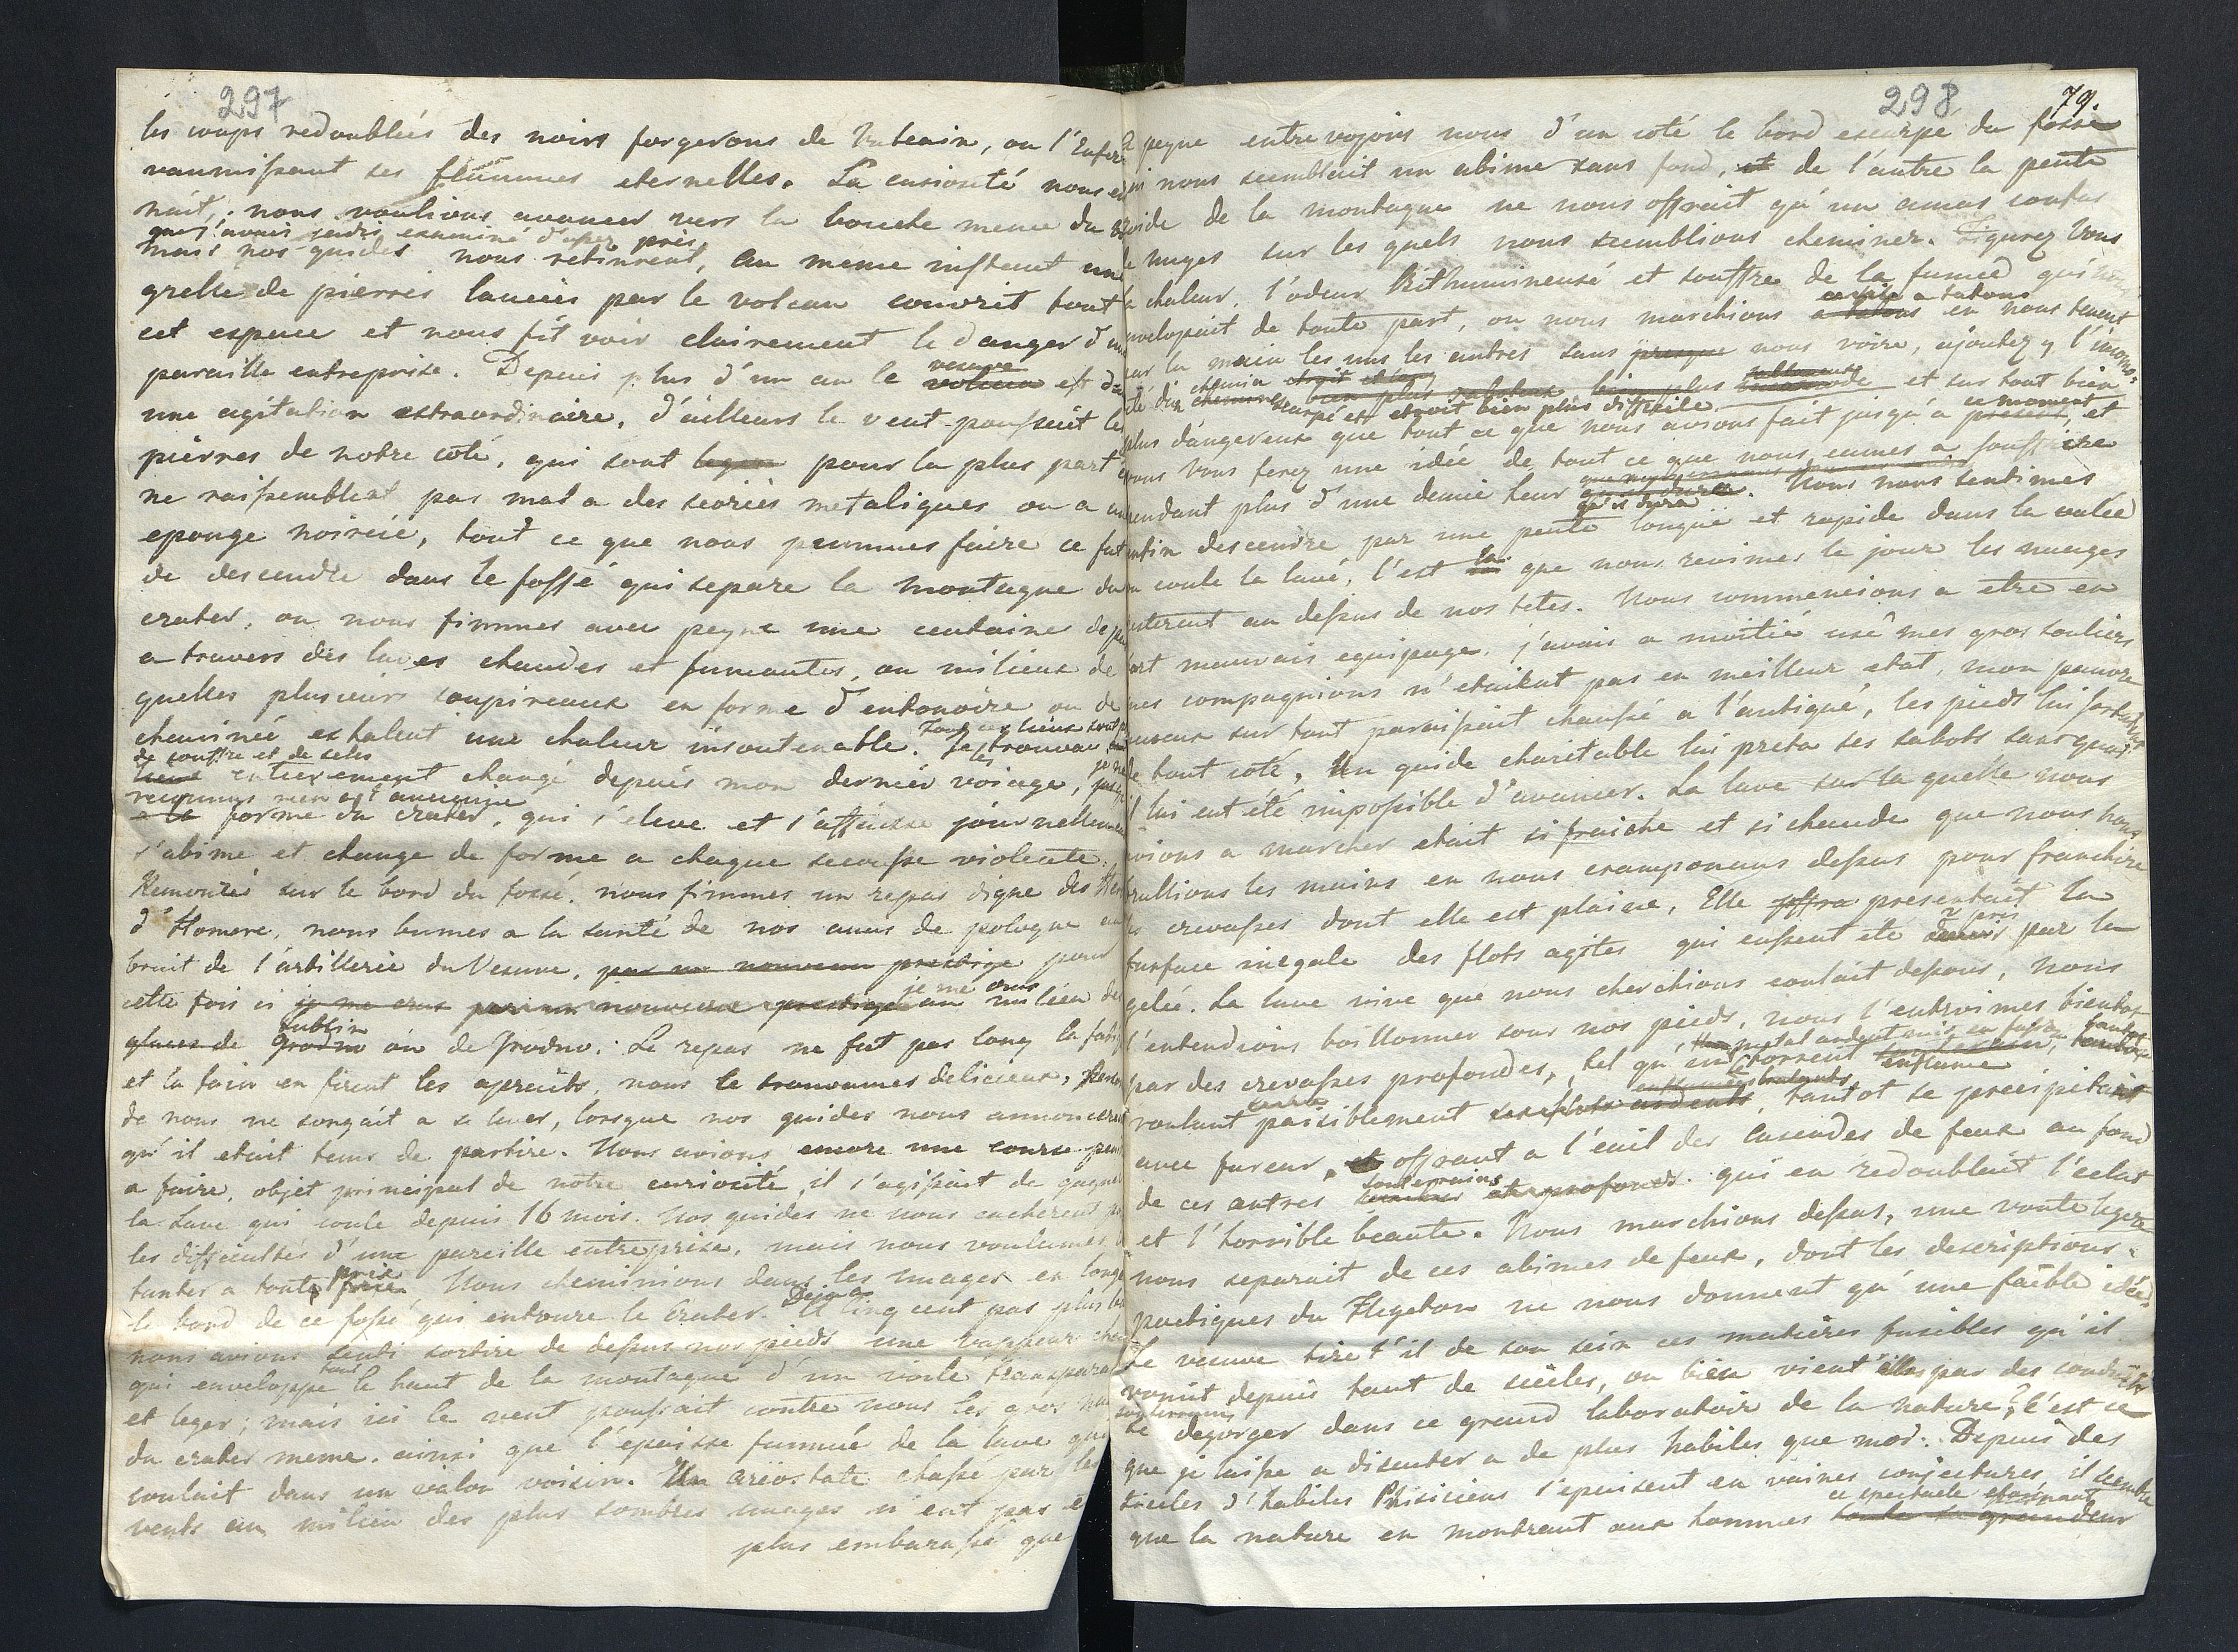 297
les coups redoublées des noirs forgerons de Vulcain, ou l'Enfer
vaumissant ses flammes eternelles. La curiosité nous
nait, nous voulions avancer vers la bouche meme du
que j'avais jadis examiné d'assez près,
mais nos guides nous retinrent, au meme instant une
grelle de pierres lancées par le volcan couvrit tout
cet espace et nous fit voir clairement le danger d'une
paraille entreprise. Depuis plus d'un an le volcan vesuve est
une agitation extraordinaire, d'ailleurs le vent poussait les
pierres de notre coté, qui sont legere pour la plus part
ne raissemblent pas mal a des scories metaliques ou a
eponge noircie, tout ce que nous peummes faire ce fut
de descendre dans le fossé qui separe la montagne du
crater, ou nous fimmes avec peyne une centaine de
a travers des laves chaudes et fumantes, au milieux de
quelles plusieurs soupireaux en forme d'entonoire ou de
cheminée exhalent une chaleur insoutenable. Tout ces lieux sont
de souffre et de sels
entierement changé depuis mon dernier voiage,
reconnus rien
a la forme du crater, qui s'eleve et s'affaisse journellement
s'abime et change de forme a chaque secousse violente.
Remonté sur le bord du fossé, nous fimmes un repas digne des
d'Homere, nous bumes a la santé de nos amis de pologne au
bruit de l'artillerie du Vesuve, par un nouveau prestige pour
cette fois ci je me crus par un nouveau prestige je me crus au milieu des
glaces de Grodno Lublin ou de Grodno. Le repas ne fut pas long la
et la faim en firent les aprets, nous le trouvames delicieux,
de nous ne songait a se lever, lorsque nos guides nous annoncerent
qu'il etait tems de partire. Nous avions encore une course
a faire, objet principal de notre curiosité, il s'agissait de gagner
la Lave qui coule depuis 16 mois. Nos guides ne nous cacherent
les difficultés d'une pareille entreprise, mais nous voulumes
tanter a toute prix. Nous cheminions dans les nuages en
le bord de ce fossé qui entoure le Crater. Deja a Cinq cent pas plus
nous avions senti sortire de dessus nos pieds une vappeur
qui enveloppe tout le haut de la montagne d'un voile
et leger; mais ici le vent poussait contre nous les gros
du crater meme, ainsi que l'epaisse fummée de la lave qui
coulait dans un valon voisin. Un areostate chassé par les
vents au milieu des plus sombres nuages n'eut pas
plus embarassé que
298 79.
A peyne entrevoyons nous d'un coté le bord escarpé du fossé
qui nous semblait un abime sans fond, et de l'autre la pente
de la montagne ne nous offrait qu'un amas confus
de nuages sur les quels nous semblions cheminer. Figurez Vous
la chaleur, l'odeur Bithumineuse et souffre de la fumée qui
envelopait de toute part, ou nous marchions a tatons a tatons en nous tenant
par la main les uns les autres sans presque nous voire, ajoutez y
chemin escarpé et etroit bien plus difficile et sur tout bien
plus dangereux que tout ce que nous avions fait jusqu'a present, ce moment et
vous Vous ferez une idée de tout ce que nous eumes a souffrire
pendant plus d'une demie heur qu'il dura. Nous nous sentimes
enfin descendre par une pente longue et rapide dans la valée
ou coule la lave. C'est la que nous revimes le jour les nuages
resterent au dessus de nos tetes. Nous commencions a etre en
fort mauvais equipage, j'avais a moitié usé mes gros souliers
mes compagnions n'etaient pas en meilleur etat, mon pauvre
sur tout paraissait chaussé a l'antique, les pieds lui sortaient
de tout coté. Un guide charitable lui preta ses sabots sans quoi
il lui eut été impossible d'avancer. La lave sur la quelle nous
avions a marcher etait si fraiche et si chaude que nous nous
brullions les mains en nous cramponans dessus pour franchire
les crevasses dont elle est plaine, Elle offra presentait la
surface inegale des flots agités qui eussent ete par la
gelée. La lave vive que nous cherchions coulait dessous, nous
l'entendions boillonner sous nos pieds, nous l'entrevimes bientot
par des crevasses profondes, tel qu'un torrent enflamé tantot
roulant paisiblement ses flots ardents, tantot se precipitant
avec fureur, et offrant a l'œil des Cascades de feux au fond
de ces antres souterrains et profonds qui en redoublait l'eclat
et l'horrible beauté. Nous marchions dessus, une voute legere
nous separait de ces abimes de feux, dont les descriptions
poetiques du Flegeton ne nous donnent qu'une faible idée
Le vesuve tire t'il de son sein ces matières fusibles qu'il
vomit depuis tant de siécles, ou bien vient elles par des conduits
souterrains
se degorger dans ce grand laboratoire de la nature? c'est ce
que je laisse a discuter a de plus habiles que moi. Depuis des
siecles d'habiles Phisiciens s'epuisent en vaines conjectures, il semble
ce spectacle etonnant
que la nature en montrant aux hommes toute sa grandeur